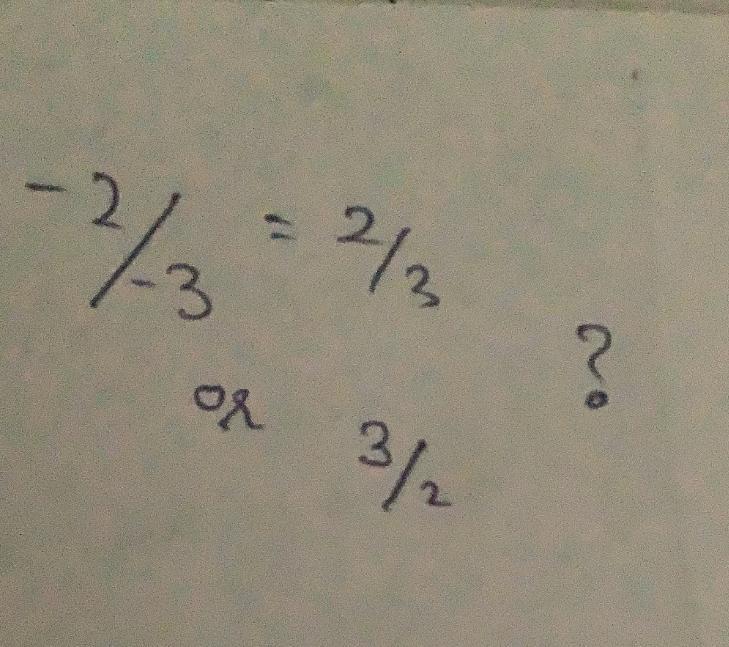 -2/-3 = 2/3
?
or 3/2